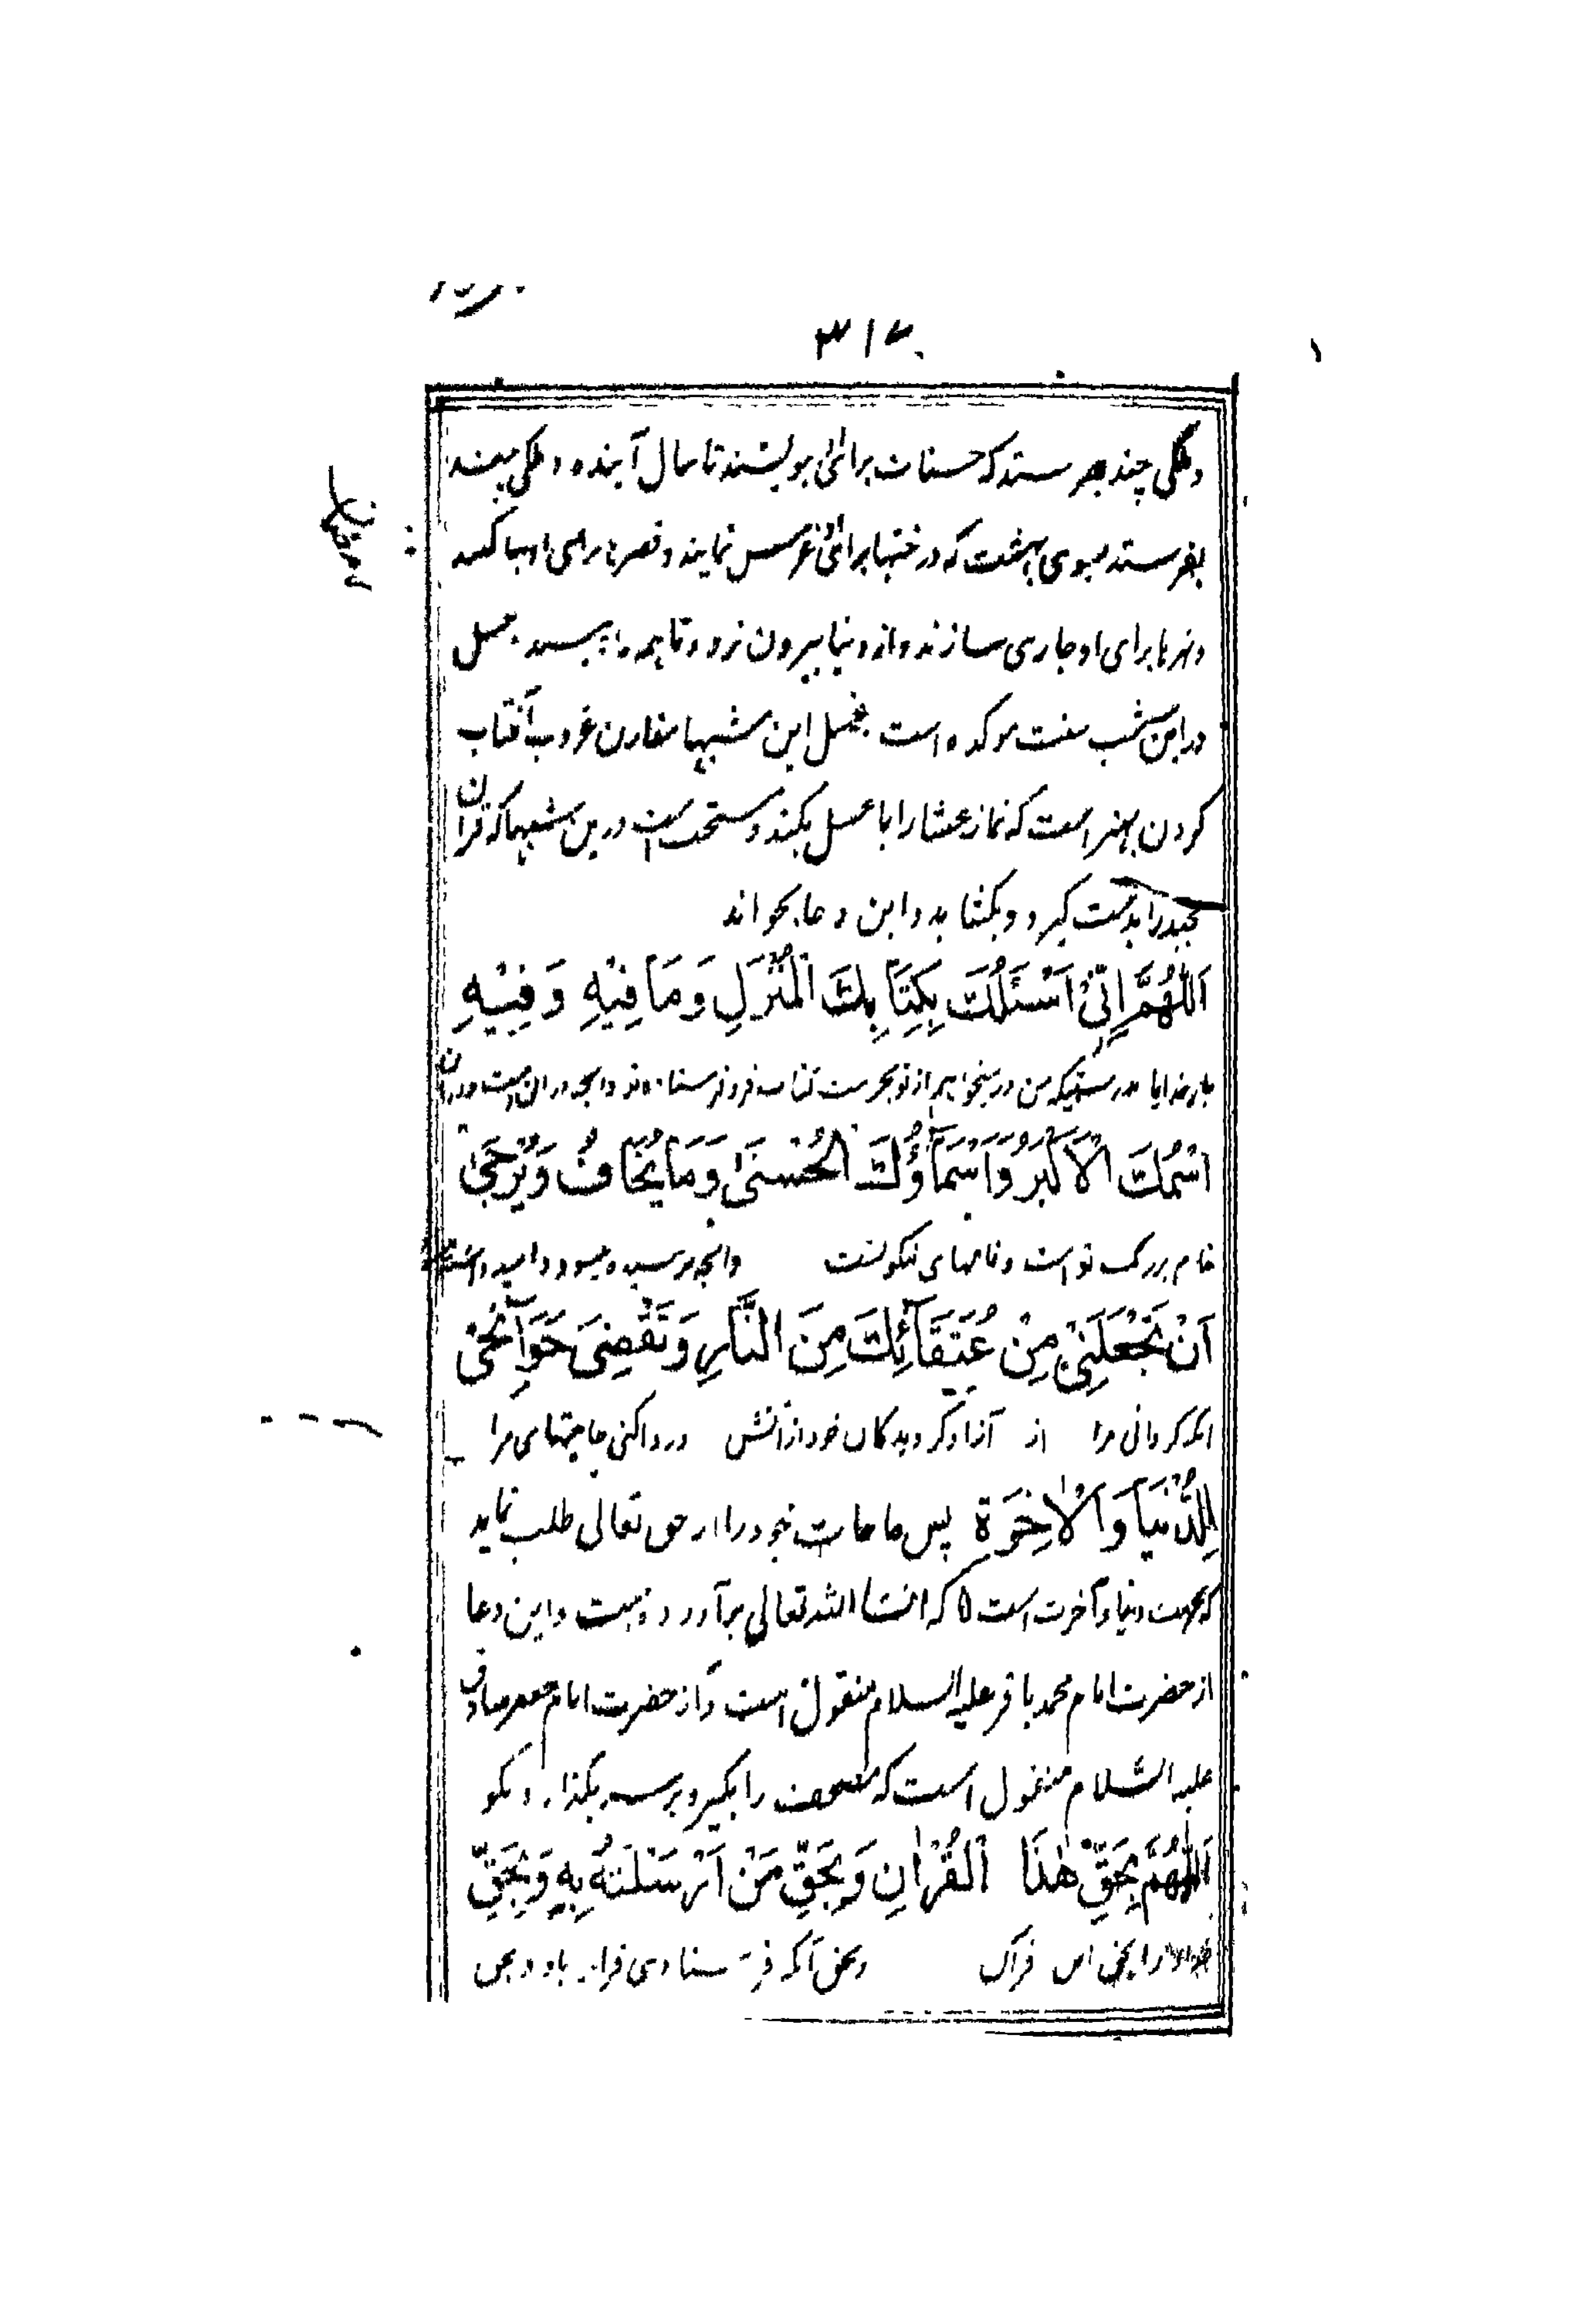 ۳۱۶
وملکی چند بفرستد که حسنات برای او بنویسند تا سال آینده و ملکی چند
بفرستد بسوی بهشت که درختها برای او غرس نمایند و قصرها برای او بنا کنند
و نهرها برای او جاری سازند و از دنیا بیرون نرود تا همه را ببیند غسل
در این شب سنت موکده است غسل این شبها مقارن غروب آفتاب
کردن بهتر است که نماز عشا را با غسل بکند و مستحب است درین شبها که قرآن
مجید را بدست گیرد و بکشاید و این دعا بخواند
اَللّٰهُمَّ اِنِّیْ اَسْئَلُكَ بِكِتَابِكَ الْمُنْزَلِ وَمَا فِيْهِ وَفِيْهِ
بار خدایا بدرستیکه من میخواهم از تو بحرمت کتاب فرو فرستاده تو وانچه در ان است و در ان
اسْمُكَ الْاَكْبَرُ وَاَسْمَآؤُكَ الْحُسْنٰى وَمَا يُخَافُ وَيُرْجٰى
نام بزرک تو است و نامهای نیکو تست وانچه ترسیده میشود و امید داشته
اَنْ تَجْعَلَنِىْ مِنْ عُتَقَآئِكَ مِنَ النَّارِ وَتَقْضِىَ حَوَآئِجِىْ
انکه کردانی مرا از آزاد کردیدکان خود از آتش و روا کنی حاجتهای مرا
لِلدُّنْيَا وَالْاٰخِرَةِ پس حاجات خود را از حق تعالی طلب نماید
که بجهت دنیا و آخرت است که انشا الله تعالی برآورده است و این دعا
از حضرت امام محمد باقر علیه السلام منقول است و از حضرت امام جعفر صادق
علیه السلام منقول است که مصحف را بگیر و بر سر بگذار و بگو
اَللّٰهُمَّ بِحَقِّ هٰذَا الْقُرْاٰنِ وَبِحَقِّ مَنْ اَرْسَلْتَهُ بِهِ وَبِحَقِّ
بحق این قرآن و بحق آنکه فرستادی او را باو و بحق